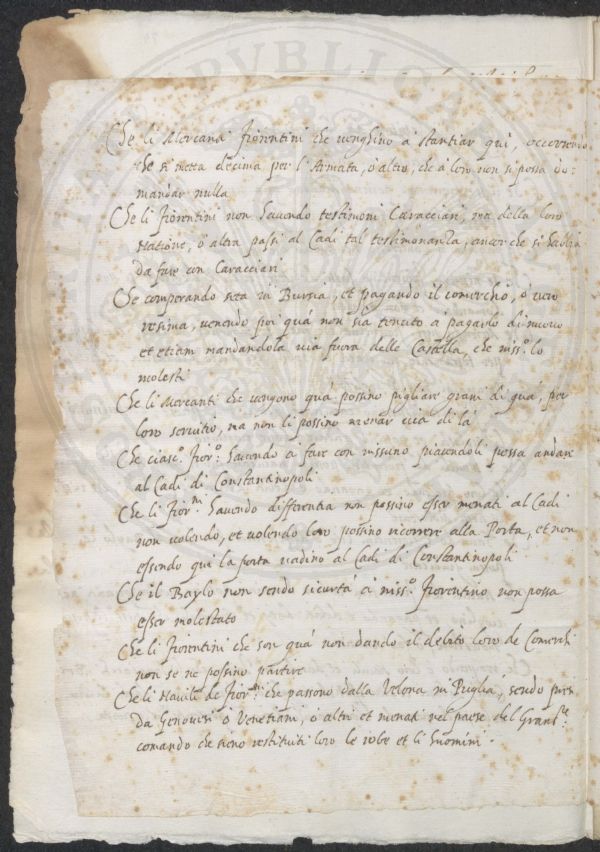 Che li Mercanti fiorentini che venghino à stantiar qui, occorrendo
che si metta decima per l'Armata, ò altro, che à loro non si possa do:
mandar nulla
Che li fiorentini non havendo testimoni Caracciari, ma della loro
Natione, ò altra passi al Cadi tal testimonanza, ancor che si habbia
da fare con Caracciari
Che comperando seta in Bursia, et pagando il comerchio, ò vero
resima, venendo poi quà non sia tenuto à pagarlo di nuovo
et etiam mandandola via fuora delle Castella, che niss.o lo
molesti
Che li Mercanti che vengono quà possino pigliare grani di quà, per
loro servitio, ma non li possino menar via di là
Che ciasc.o fior.o havendo à fare con nissuno piacendoli possa andare
al Cadi di Constantinopoli
Che li fior.ni havendo differentia non possino esser menati al Cadi
non volendo, et volendo loro possino ricorrere alla Porta, et non
essendo qui la porta vadino al Cadi di Constantinopoli
Che il Baylo non sendo sicurtà à niss.o fiorentino non possa
esser molestato
Che li fiorentini che son quà non dando il debito loro de Comerchi
non se ne possino partire
Che li Navili de fior.ni che passono dalla Velona in Puglia, sendo presi
da Genovesi ò Venetiani, ò altri et menati nel paese del Gran S.re
comando che sieno restituiti loro le robe et li huomini.